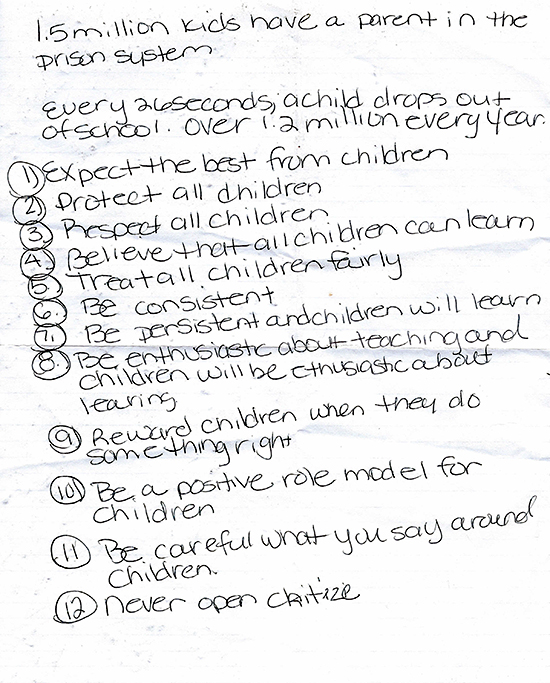 1.5 million kids have a parent in the
prison system
Every 26 seconds, a child drops out
of school. Over 1.2 million every year.
1) Expect the best from children
2) Protect all children
3. Respect all children
4. Believe that all children can learn
5. Treat all children fairly
6. Be consistent
7. Be persistent and children will learn
8. Be enthusiastic about teaching and
children will be ethusiastic about
learing
9 Reward children when they do
something right
10) Be a positive role model for
children
11 Be careful what you say around
children.
12 never open chitize